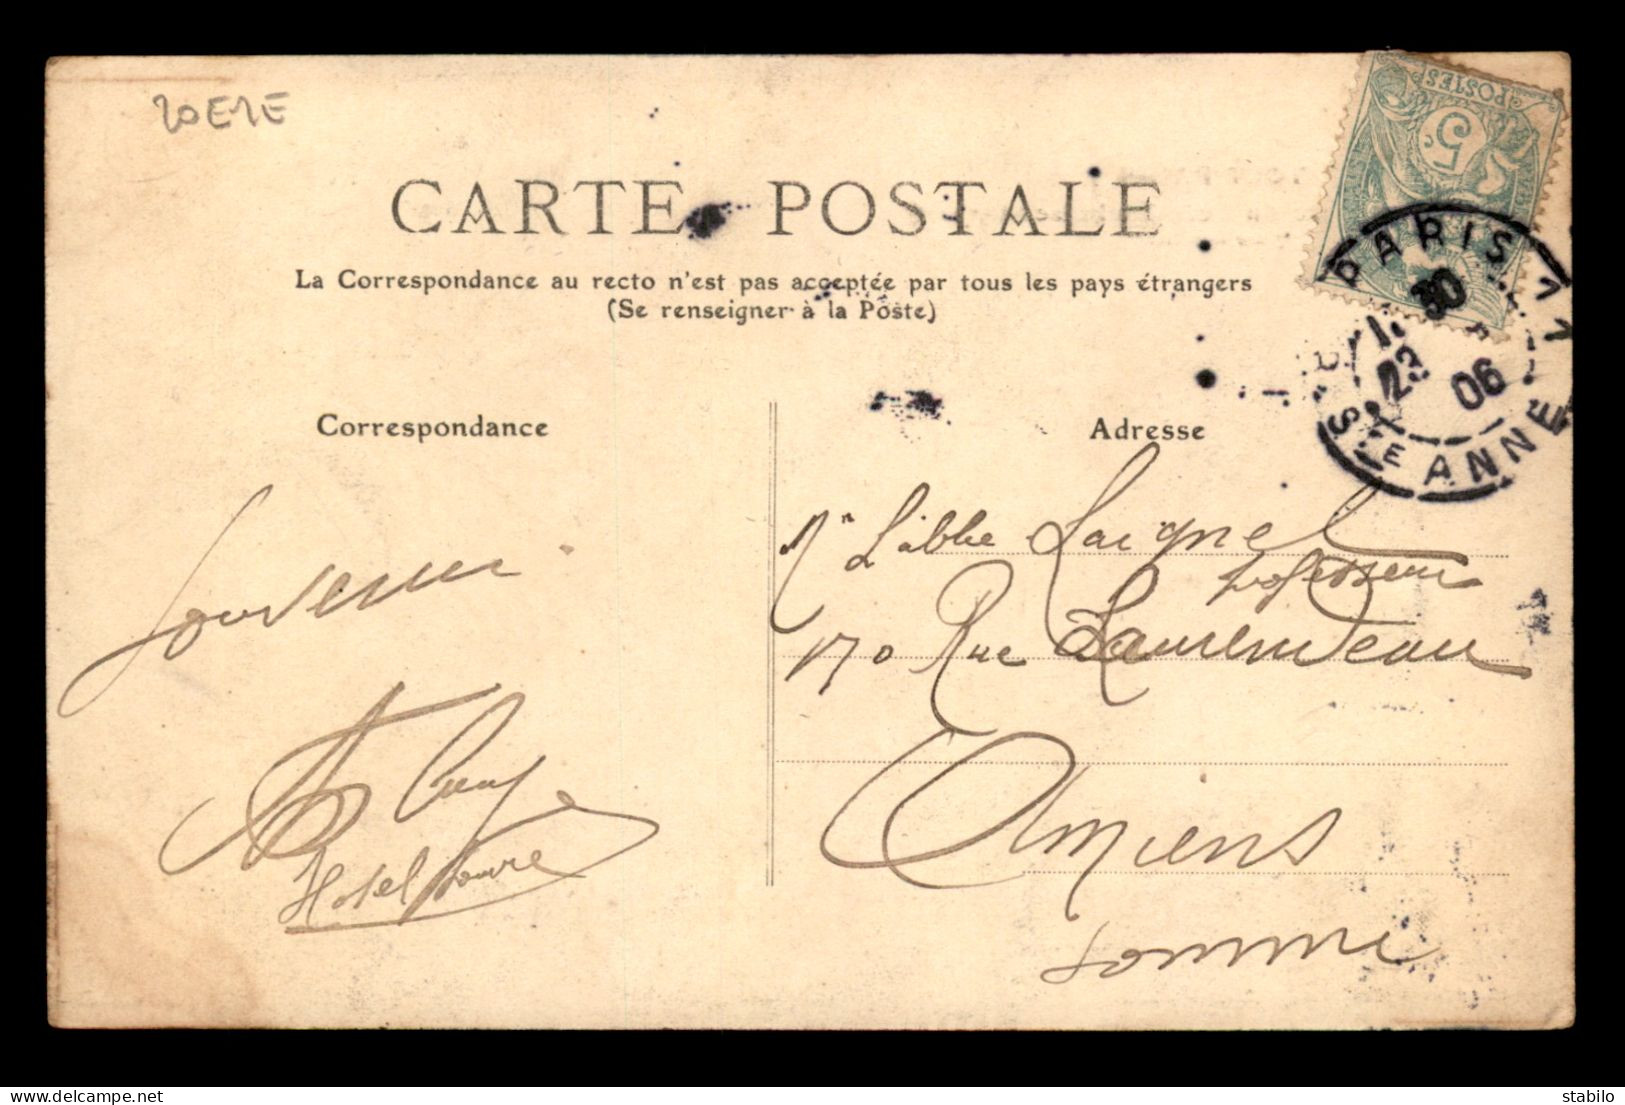 CARTE POSTALE
La Correspondance au recto n'est pas acceptée par tous les pays étrangers
(Se renseigner à la Poste)
POSTES
5c
PARIS
30
23 06
STE ANNE
Correspondance
Adresse
Souvenir
Hotel Louvre
Mr L'abbé Laignel
professeur
170 Rue Laurendeau
Amiens
Somme
delcampe.net
stabilo